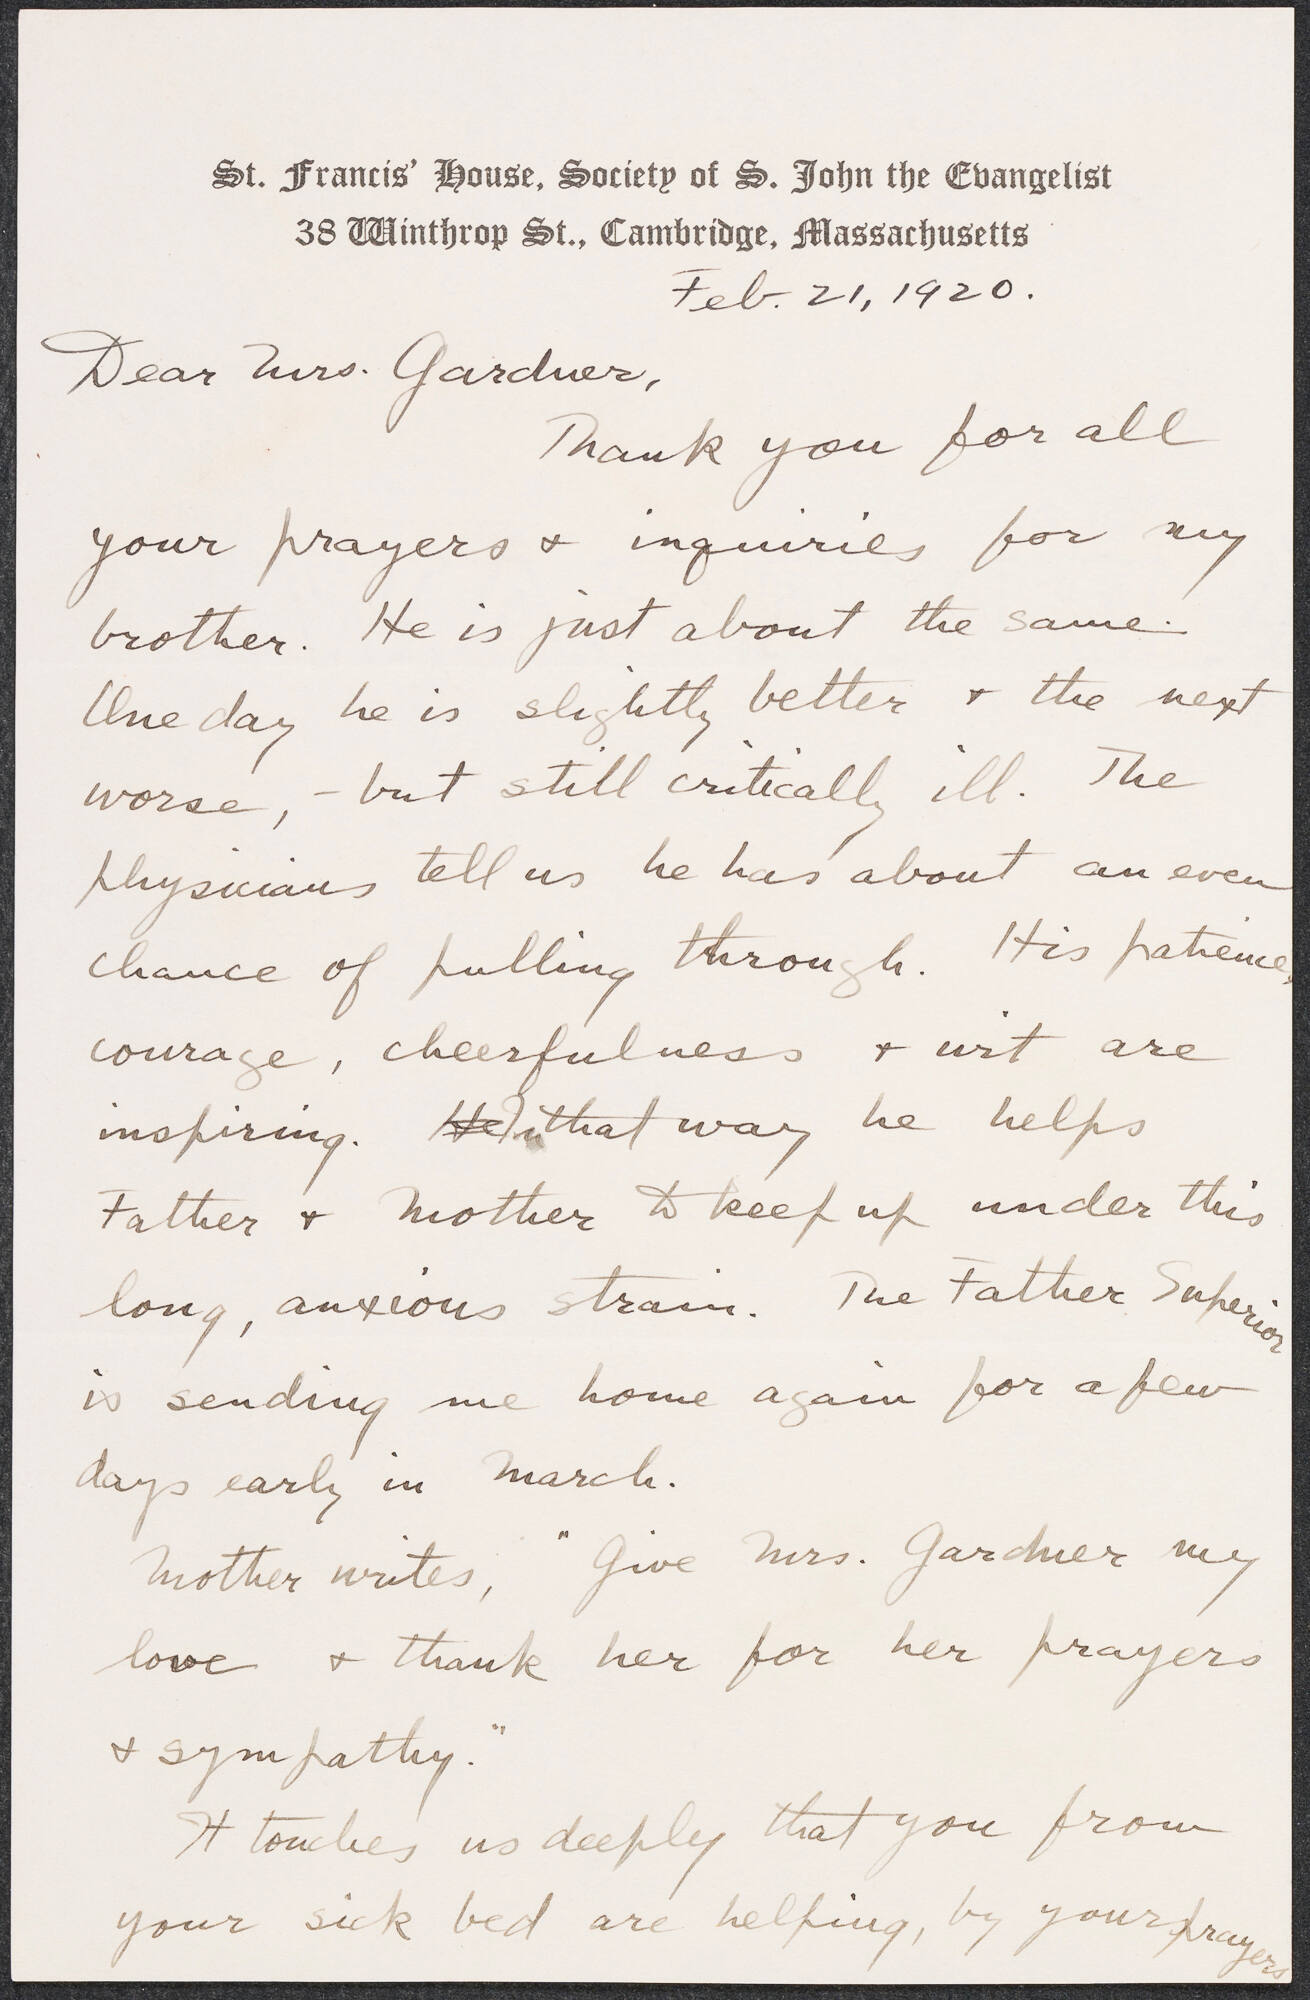 St. Francis' House, Society of S. John the Evangelist
38 Winthrop St., Cambridge, Massachusetts
Feb. 21, 1920.
Dear Mrs. Gardner,
Thank you for all
your prayers & inquiries for my
brother. He is just about the same.
One day he is slightly better & the next
worse, - but still critically ill. The
physicians tell us he has about an even
chance of pulling through. His patience,
courage, cheerfulness & wit are
inspiring. He In that way he helps
Father & Mother to keep up under this
long, anxious strain. The Father Superior
is sending me home again for a few
days early in March.
Mother writes, "Give Mrs. Gardner my
love & thank her for her prayers
& sympathy."
It touches us deeply that you from
your sick bed are helping, by your prayers